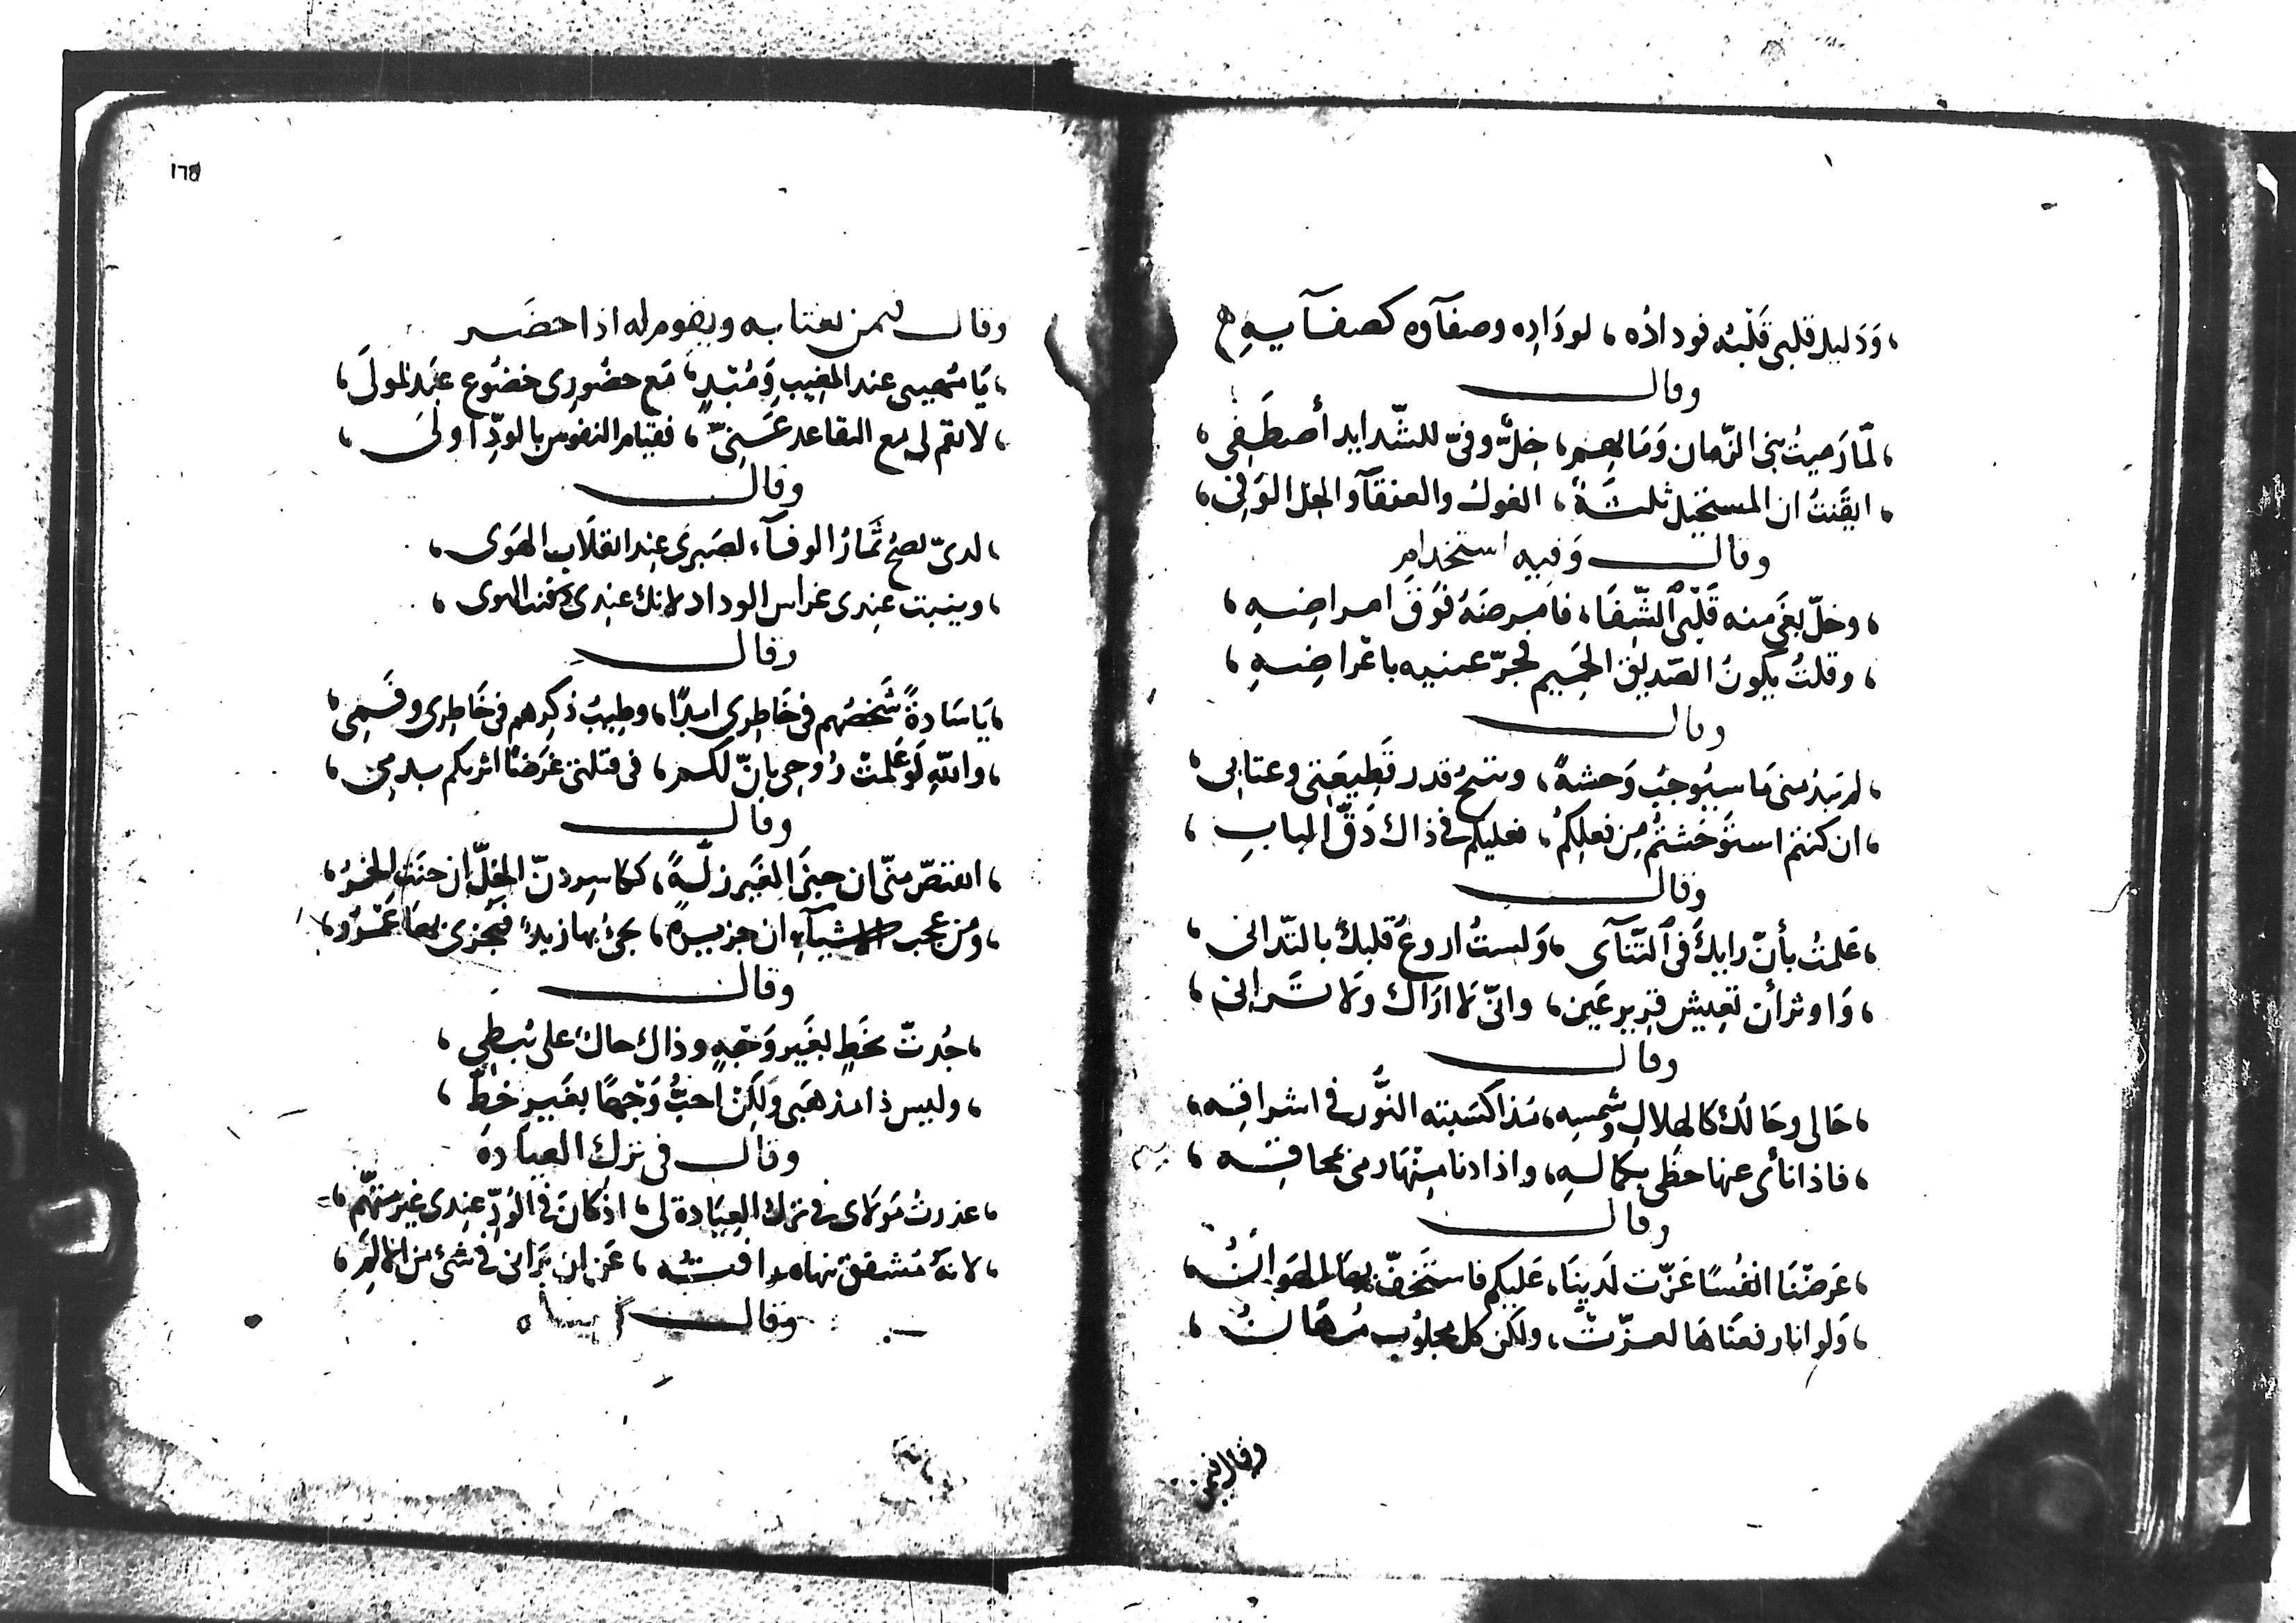 ، وَدَليل قلبى قَلْبُه فوداده ، لودَادِه وصفآوه كصفآيهِ
وقال
، لمّا رَميتُ بنى الزّمان وَمَا بهم ، خِلٌّ وفىّ للشّدايد أصطَفِى ،
، ايقَنتُ ان المستحيل ثلثةٌ ، الغول والعنقآ والخل الوَفِى ،
وقال وَفيه استخدام
، وخلّ بغَى منه قَلْبى الشِّفَا ، فامرضَهُ فَوقَ امراضِهِ ،
، وقلتُ يكونُ الصَديق الحَمِيم فجرّعنيه باغراضِهِ ،
وقال
، لم يَبدُ منى مَا سيُوجبُ وَحشةً ، ويتيحُ قدر قَطِيعَتِى وعتابى ،
، ان كنتم استوحَشتُم مِن فعلِكمُ ، فعليكم فى ذاك دَقُّ البابِ ،
وقال
، عَلمتُ بأنّ رايكَ فى التَّنآى ، وَلستُ اروعُ قلبكَ بالتّدانى ،
، وَاوثر أن تعِيش قرير عَين ، وانّى لَا ارَاك وَلَا تَرانى ،
وقال
، حَالى وحَالُك كالهلالِ وشمسِه ، مذ اكسَبته النُّور فى اشراقِه ،
، فاذا نأى عنها حظى بكمالهِ ، واذا دنا منها رمى بمحاقه ،
وقال
، عَرضْنَا انفُسًا عَزّت لَدينَا ، عَليكم فاستَخفّ بهَا الهَوانُ ،
، وَلو انا رفعنَاهَا لعزّت ، ولكن كل مجلُوب مُهَانُ ،
وقال فيمن
١٦٥
وقال فيمن يغتابه ويقوم له اذا حضَر
، يَا مُهينى عند المغيبِ وَمُبْدٍ ، مَع حضُورى خضُوع عَبد لمولَى ،
، لا تقم لى مع التقاعد عَنّى ، فقيام النفوس بالودّ اولى ،
وقال
، لدىّ تصحُ ثمَارُ الوفآء لصَبرى عِند انقلَابِ الهَوى ،
، وينبت عندى غراس الوداد لانك عندى دفنت الهوى ،
وقال
، يَا سَادةً شَخصُهم فى خَاطِرى ابدًا ، وطِيبُ ذكرِهم فى خَاطِرى وفَمِى ،
، واللهِ لَو عَلمتْ رُوحى بانّ لكم ، فى قتلتى غَرَضًا اثرتكم بدمِى ،
وقال
، اتقتصّ منّى ان جنَى الغَير زلةً ، ككاسر دنّ الخلّ ان جنَت الخمرُ ،
، ومن عجب الاشيآء ان جريرةً ، يجئ بها زيدٌ فيُجزى بهَا عَمْرُو ،
وقال
، جُدتّ بخَطٍ بغَير وَجْهٍ وذاك حاك على بُطىِ ،
، وليس ذا مذهَبى وَلكِنْ احبُّ وَجْهًا بغَيرِ خطّ ،
وقال فى ترك العيادة
، عذرتُ مَولَاى فى ترك العيَادة لى ، اذ كانَ فى الودِّ عِندى غيرَ متهّم ،
، لانهُ مُشفق تنهاه رافتُه ، عَن ان يَرانى فى شئ من الالمِ ،
وقال